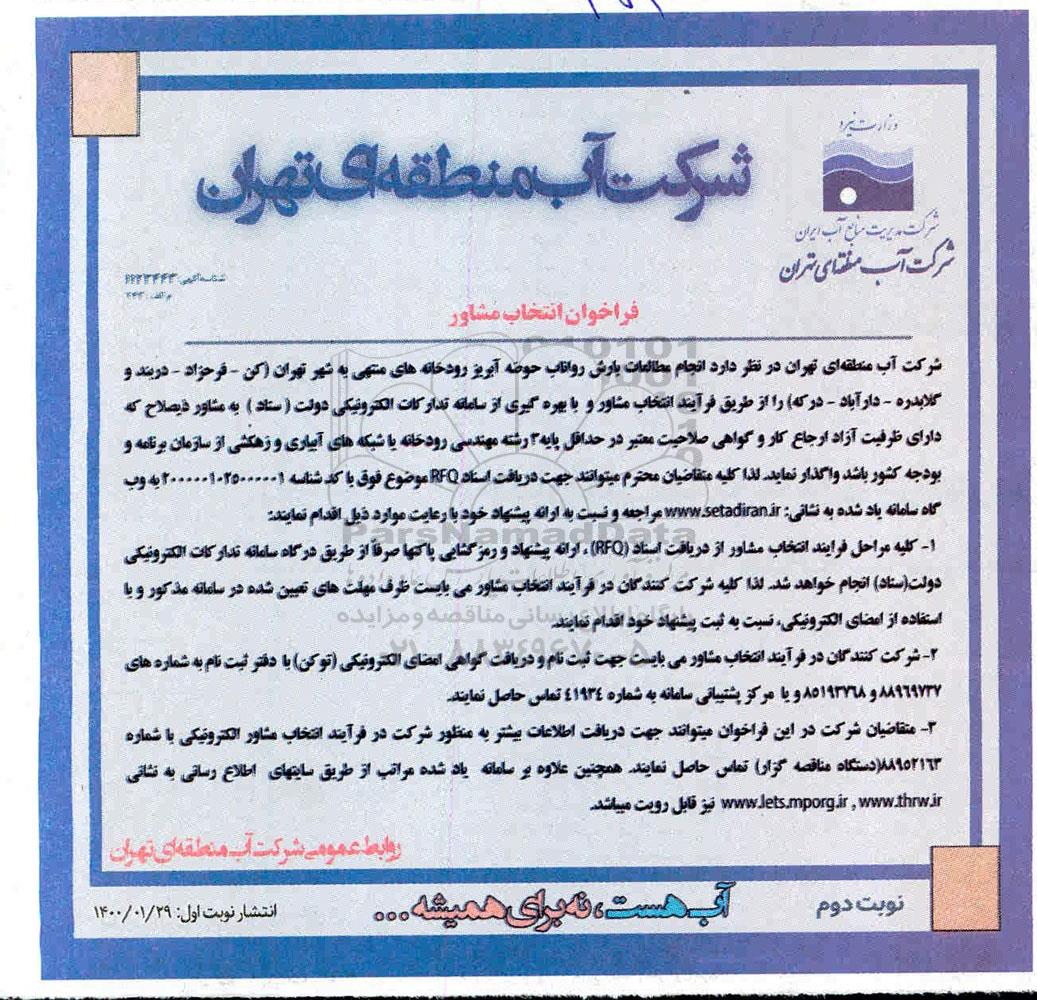 وزارت نیرو
شرکت مدیریت منابع آب ایران
شرکت آب منطقه‌ای تهران
شرکت آب منطقه‌ای تهران
شناسه آگهی:
م الف: ۲۴۳
فراخوان انتخاب مشاور
شرکت آب منطقه‌ای تهران در نظر دارد انجام مطالعات بارش رواناب حوضه آبریز رودخانه های منتهی به شهر تهران (کن - فرحزاد - دربند و
گلابدره - دارآباد - درکه) را از طریق فرآیند انتخاب مشاور و با بهره گیری از سامانه تدارکات الکترونیکی دولت ( ستاد ) به مشاور ذیصلاح که
دارای ظرفیت آزاد ارجاع کار و گواهی صلاحیت معتبر در حداقل پایه۳ رشته مهندسی رودخانه یا شبکه های آبیاری و زهکشی از سازمان برنامه و
بودجه کشور باشد واگذار نماید. لذا کلیه متقاضیان محترم میتوانند جهت دریافت اسناد RFQ موضوع فوق با کد شناسه ۲۰۰۰۰۰۱۰۲۵۰۰۰۰۰۱ به وب
گاه سامانه یاد شده به نشانی: www.setadiran.ir مراجعه و نسبت به ارائه پیشنهاد خود با رعایت موارد ذیل اقدام نمایند:
۱- کلیه مراحل فرایند انتخاب مشاور از دریافت اسناد (RFQ)، ارائه پیشنهاد و رمزگشایی پاکتها صرفاً از طریق درگاه سامانه تدارکات الکترونیکی
دولت(ستاد) انجام خواهد شد. لذا کلیه شرکت کنندگان در فرآیند انتخاب مشاور می بایست ظرف مهلت های تعیین شده در سامانه مذکور و با
استفاده از امضای الکترونیکی، نسبت به ثبت پیشنهاد خود اقدام نمایند.
۲- شرکت کنندگان در فرآیند انتخاب مشاور می بایست جهت ثبت نام و دریافت گواهی امضای الکترونیکی (توکن) با دفتر ثبت نام به شماره های
۸۸۹۶۹۷۳۷ و ۸۵۱۹۳۷۶۸ و یا مرکز پشتیبانی سامانه به شماره ۴۱۹۳۴ تماس حاصل نمایند.
۳- متقاضیان شرکت در این فراخوان میتوانند جهت دریافت اطلاعات بیشتر به منظور شرکت در فرآیند انتخاب مشاور الکترونیکی با شماره
۸۸۹۵۲۱۶۳(دستگاه مناقصه گزار) تماس حاصل نمایند. همچنین علاوه بر سامانه یاد شده مراتب از طریق سایتهای اطلاع رسانی به نشانی
www.lets.mporg.ir , www.thrw.ir نیز قابل رویت میباشد.
ParsNamadData
پایگاه اطلاع رسانی مناقصه و مزایده
۰۲۱-۸۸۳۴۹۶۷۰-۵
روابط عمومی شرکت آب منطقه‌ای تهران
نوبت دوم
آب هست، نه برای همیشه ...
انتشار نوبت اول: ۱۴۰۰/۰۱/۲۹